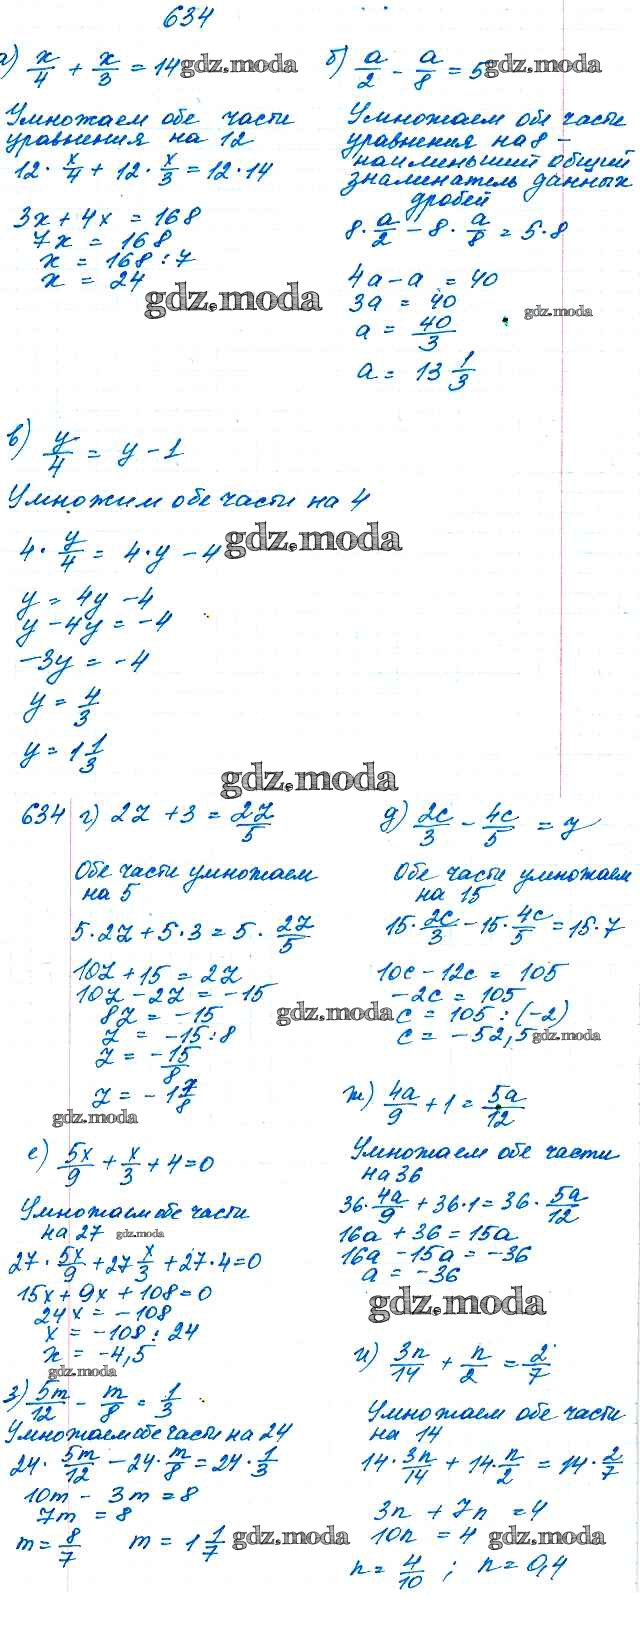 634
а) x/4 + x/3 = 14 gdz.moda
Умножаем обе части
уравнения на 12
12 · x/4 + 12 · x/3 = 12 · 14
3x + 4x = 168
7x = 168
x = 168 : 7
x = 24
gdz.moda
б) a/2 − a/8 = 5 gdz.moda
Умножаем обе части
уравнения на 8 –
наименьший общий
знаменатель данных
дробей
8 · a/2 − 8 · a/8 = 5 · 8
4a − a = 40
3a = 40
gdz.moda
a = 40/3
a = 13 1/3
в) y/4 = y − 1
Умножим обе части на 4
gdz.moda
4 · y/4 = 4 · y − 4
y = 4y − 4
y − 4y = −4
−3y = −4
y = 4/3
y = 1 1/3
gdz.moda
634 г) 2z + 3 = 2z/5
Обе части умножаем
на 5
5 · 2z + 5 · 3 = 5 · 2z/5
10z + 15 = 2z
10z − 2z = −15
8z = −15
gdz.moda
z = −15 : 8
z = −15/8
z = −1 7/8
gdz.moda
д) 2c/3 − 4c/5 = 7
Обе части умножаем
на 15
15 · 2c/3 − 15 · 4c/5 = 15 · 7
10c − 12c = 105
−2c = 105
c = 105 : (−2)
c = −52,5 gdz.moda
е) 5x/9 + x/3 + 4 = 0
Умножаем обе части
на 27 gdz.moda
27 · 5x/9 + 27 x/3 + 27 · 4 = 0
15x + 9x + 108 = 0
24x = −108
x = −108 : 24
x = −4,5
gdz.moda
ж) 4a/9 + 1 = 5a/12
Умножаем обе части
на 36
36 · 4a/9 + 36 · 1 = 36 · 5a/12
16a + 36 = 15a
16a − 15a = −36
a = −36
gdz.moda
з) 5m/12 − m/8 = 1/3
Умножаем обе части на 24
24 · 5m/12 − 24 · m/8 = 24 · 1/3
10m − 3m = 8
7m = 8
m = 8/7 m = 1 1/7 gdz.moda
и) 3n/14 + n/2 = 2/7
Умножаем обе части
на 14
14 · 3n/14 + 14 · n/2 = 14 · 2/7
3n + 7n = 4
10n = 4 gdz.moda
n = 4/10 ; n = 0,4